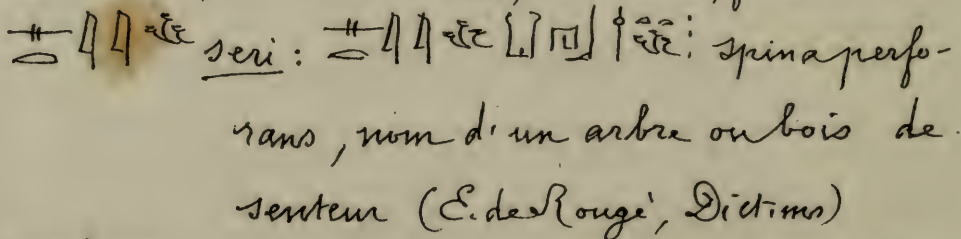 𓊃𓂋𓇋𓇋 seri : 𓊃𓂋𓇋𓇋 : spina perfo-
rans, nom d'un arbre ou bois de
senteur (E. de Rougé, Dict. ms)